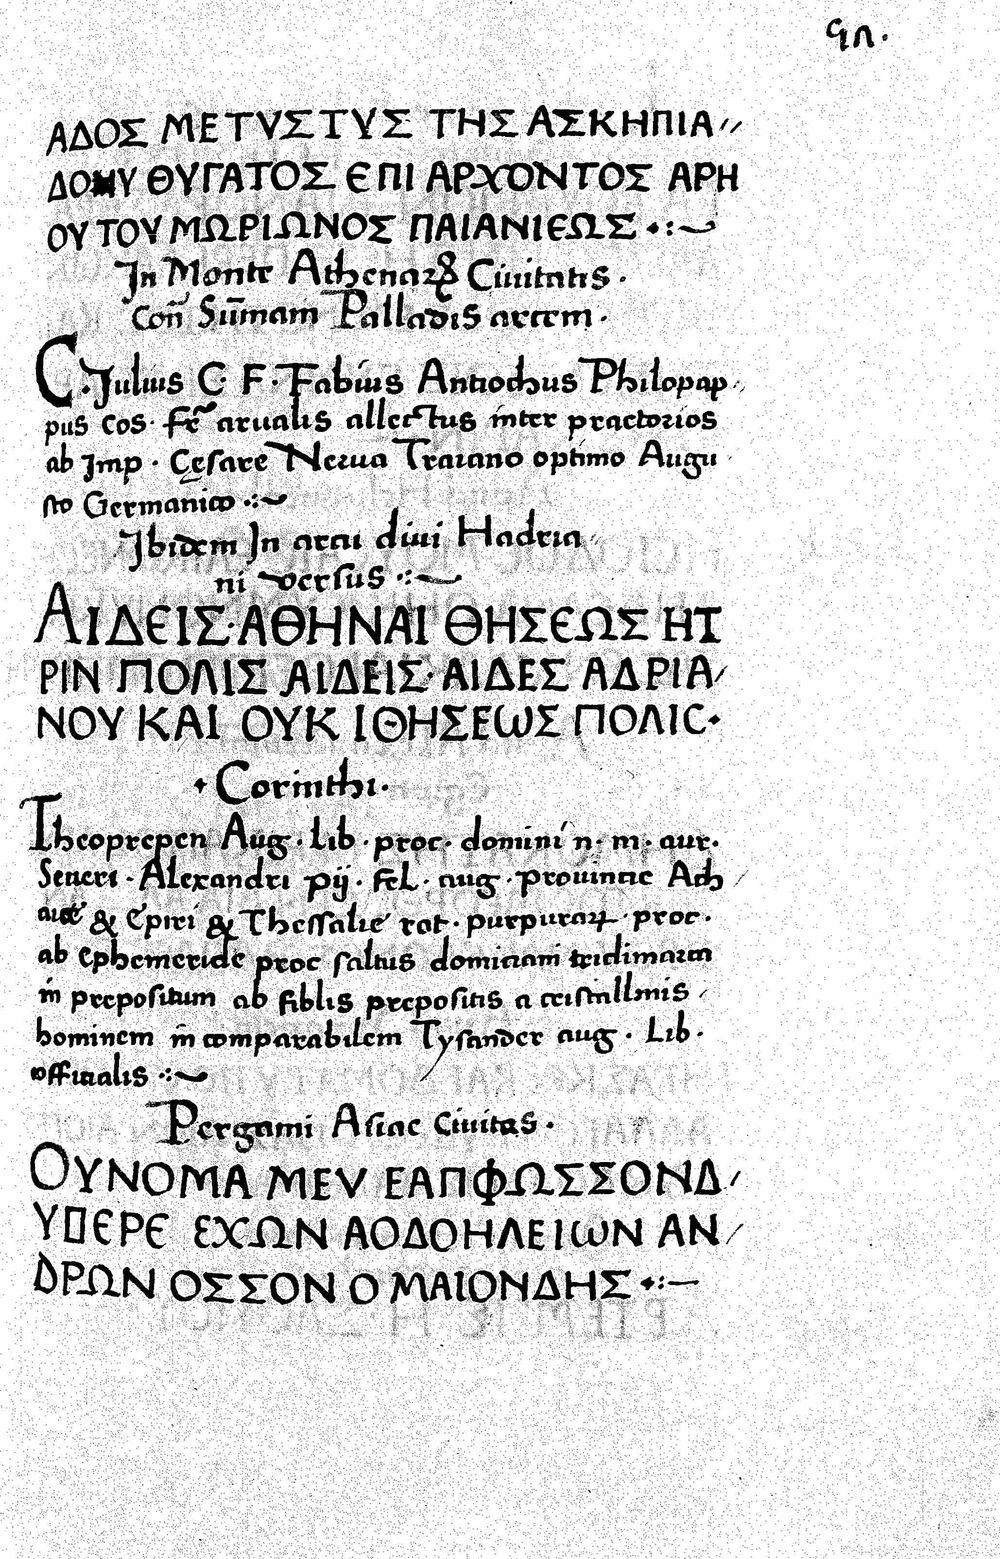 ΑΔΟΣ ΜΕΤVΣΤΥΣ ΤΗΣ ΑΣΚΗΠΙΑ//
ΘΥΓΑΤΟΣ ΕΠΙ ΑΡΧΟΝΤΟΣ ΑΡΗ
ΟΥ ΤΟΥ ΜΩΡΙΩΝΟΣ ΠΑΙΑΝΙΕΩΣ
In Monte Athenaꝝ Ciuitatis.
Coñ Sūmam Palladis arcem.
C. Julius C. F. Fabius Antiochus Philopap
pus cos. arualis allectus inter praetorios
ab Imp. Cesare Nerua Traiano optimo Augu
sto Germanico
Ibidem In arcu diui Hadria
ni versus
ΑΙΔΕΙΣ·ΑΘΗΝΑΙ ΘΗΣΕΩΣ ΗΤ
ΡΙΝ ΠΟΛΙΣ ΑΙΔΕΙΣ· ΑΙΔΕΣ ΑΔΡΙΑ/
ΝΟΥ ΚΑΙ ΟΥΚ ΙΘΗΣΕΩΣ ΠΟΛΙC·
Corinthi.
Theoprepen Aug. Lib. proc. domini n. m. aur.
Seueri. Alexandri pij. fel. aug. prouincie Ach/
& Epiri & Thessalie rat. purpuraꝝ proc.
ab ephemeride proc saltus
in prepositum ab fiblis prepositis a cristallinis
hominem in comparabilem Tysander aug. Lib.
officialis
Pergami Asiae ciuitas.
ΟΥΝΟΜΑ ΜΕV ΕΑΠΦΩΣΣΟΝΔ/
ΥΠΕΡΕ ΕΧΩΝ ΑΟΔΟΗΛΕΙΩΝ ΑΝ/
ΔΡΩΝ ΟΣΣΟΝ Ο ΜΑΙΟΝΔΗΣ